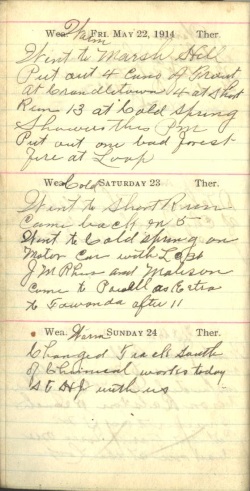 Wea. Warm FRI. MAY 22, 1914 Ther.
Went to Marsh Hill
Put out 4 Cans of Trout
at Crandletown 4 at Short
Run 13 at Cold Spring
Showers this Pm
Put out one bad forest
fire at Loop
Wea. Cold SATURDAY 23 Ther.
Went to Short Run
Came back on 5
Went to Cold Spring on
Motor Car with
J M Rhine and
Come to Powell as Extra
to Towanda after 11
Wea. Warm SUNDAY 24 Ther.
Changed Track South
of Chemical works today
with us